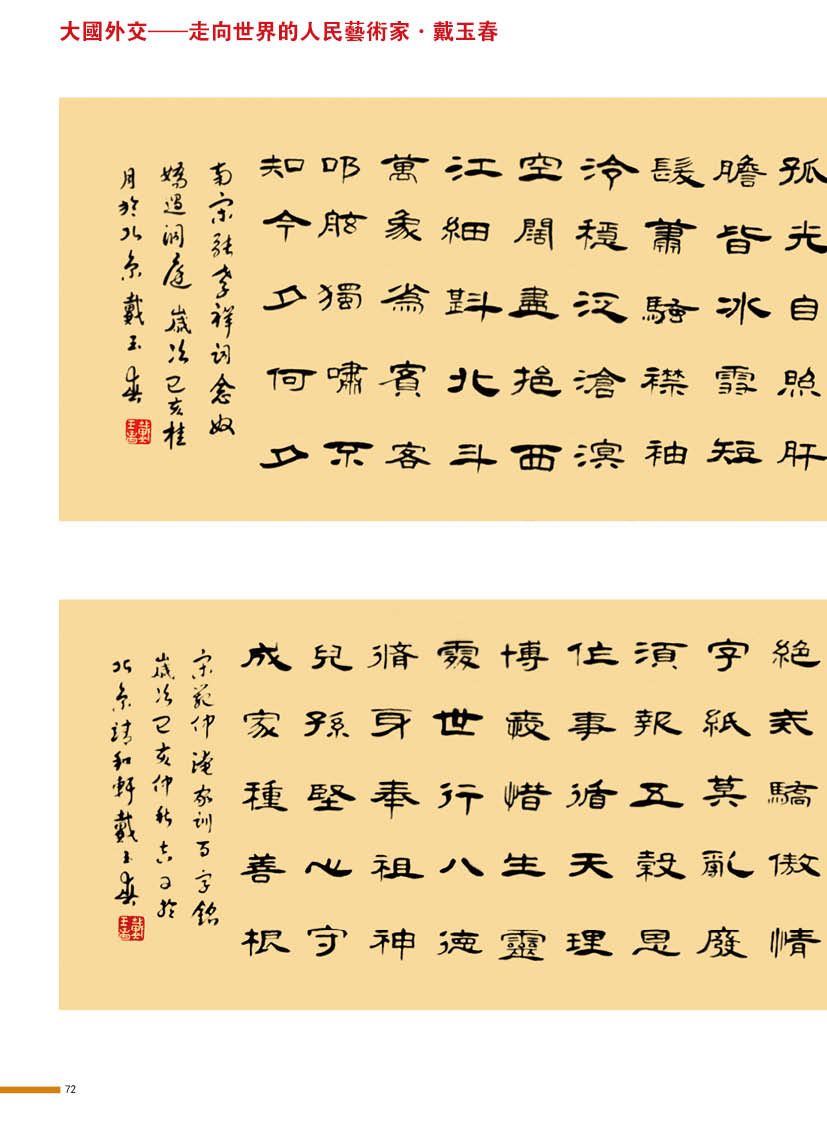 大國外交——走向世界的人民藝術家·戴玉春
孤光自照肝
膽皆冰雪短
髮蕭騷襟袖
冷穩泛滄溟
空闊盡挹西
江細斟北斗
萬象爲賓客
叩舷獨嘯不
知今夕何夕
南宋張孝祥詞念奴
嬌過洞庭 歲次己亥桂
月於北京戴玉春
絕戒驕傲情
字紙莫亂廢
須報五穀恩
作事循天理
博愛惜生靈
處世行八德
脩身奉祖神
兒孫堅心守
成家種善根
宋范仲淹家訓百字銘
歲次己亥仲秋吉日於
北京靖和軒戴玉春
72